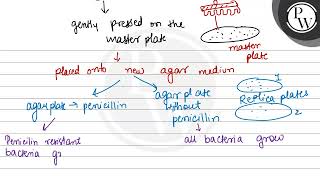 gently pressed on the
master plate
master
plate
placed onto new agar medium
agar plate → penicillin
agar plate
without
penicillin
1
Replica plates
2
Penicilin resistant
bacteria gr
all bacteria grow
PW